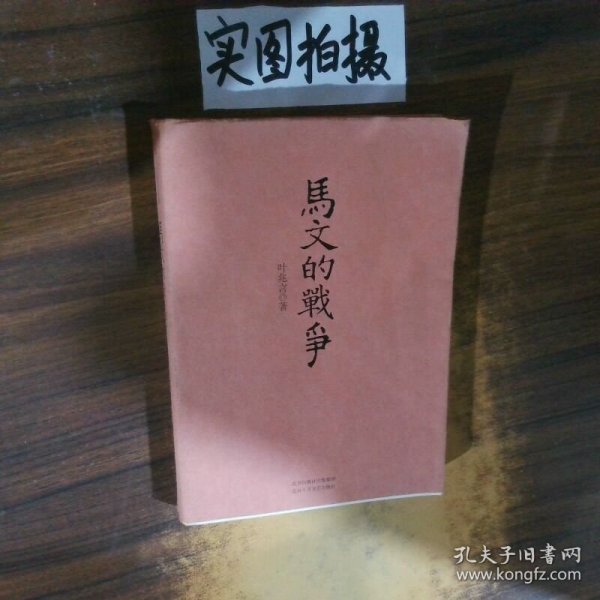 实图拍摄
馬文的戰爭
叶兆言◎著
孔夫子旧书网
www.kongfz.com